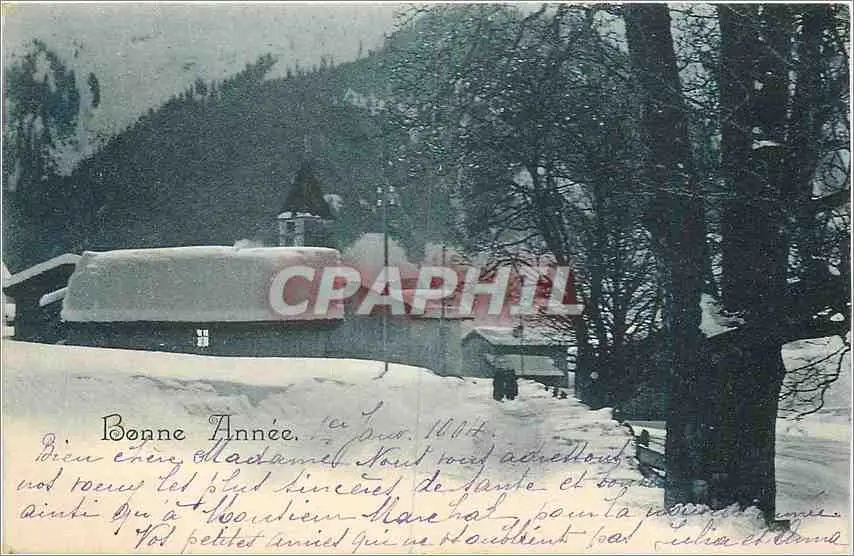 CPARPHIL
Bonne Année. 1er Janv. 1904.
Bien chère Madame. Nous vous adressons
nos vœux les plus sincères de santé et
ainsi qu'à Monsieur Marchal pour la nouvelle année
Vos petites amies qui ne vous oublient pas Julia et Emma